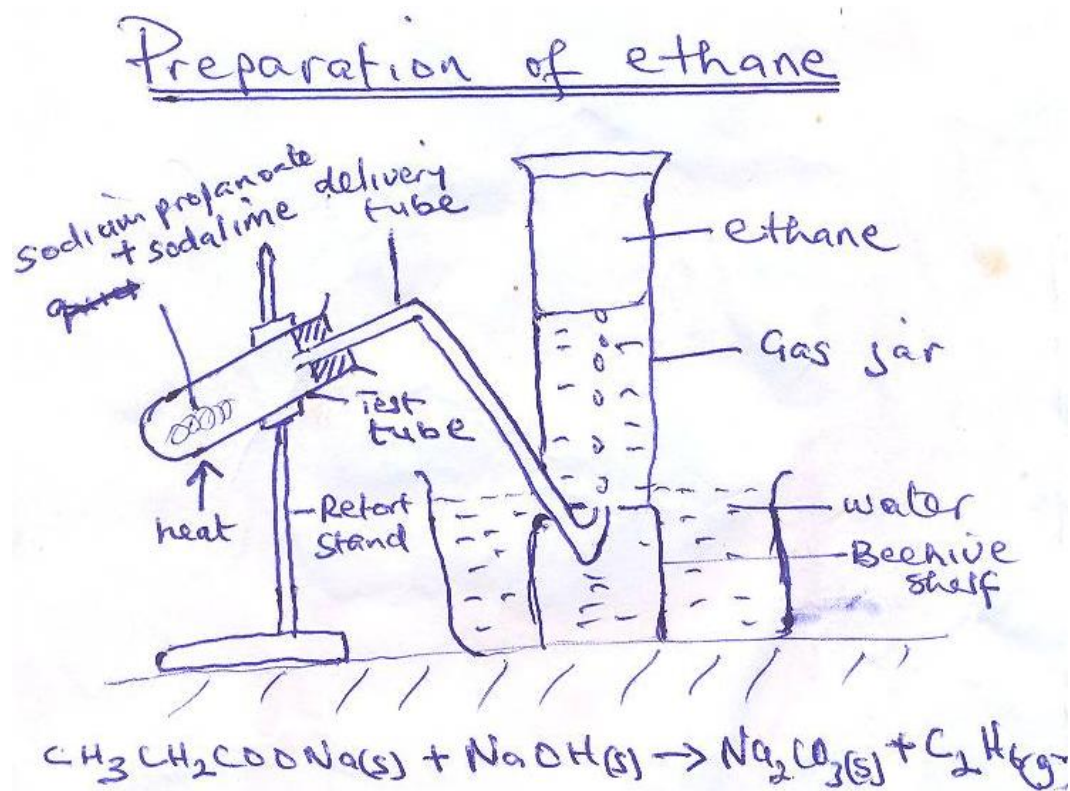 Preparation of ethane
sodium propanoate
+ sodalime
delivery
tube
ethane
Gas jar
Test
tube
heat
Retort
Stand
water
Beehive
shelf
CH3CH2COONa(s) + NaOH(s) → Na2CO3(s) + C2H6(g)